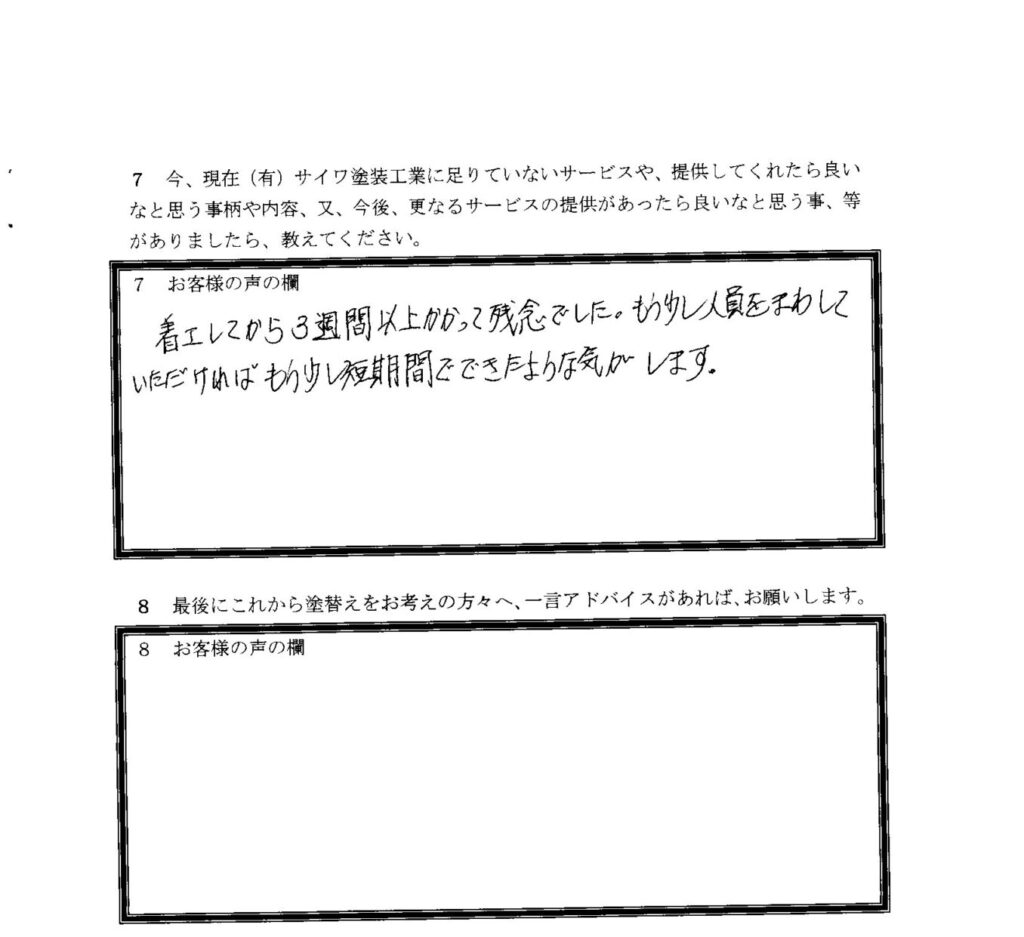 7 今、現在（有）サイワ塗装工業に足りていないサービスや、提供してくれたら良い
なと思う事柄や内容、又、今後、更なるサービスの提供があったら良いなと思う事、等
がありましたら、教えてください。
7 お客様の声の欄
着工してから3週間以上かかって残念でした。もう少し人員をまわして
いただければもう少し短期間でできたような気がします。
8 最後にこれから塗替えをお考えの方々へ、一言アドバイスがあれば、お願いします。
8 お客様の声の欄